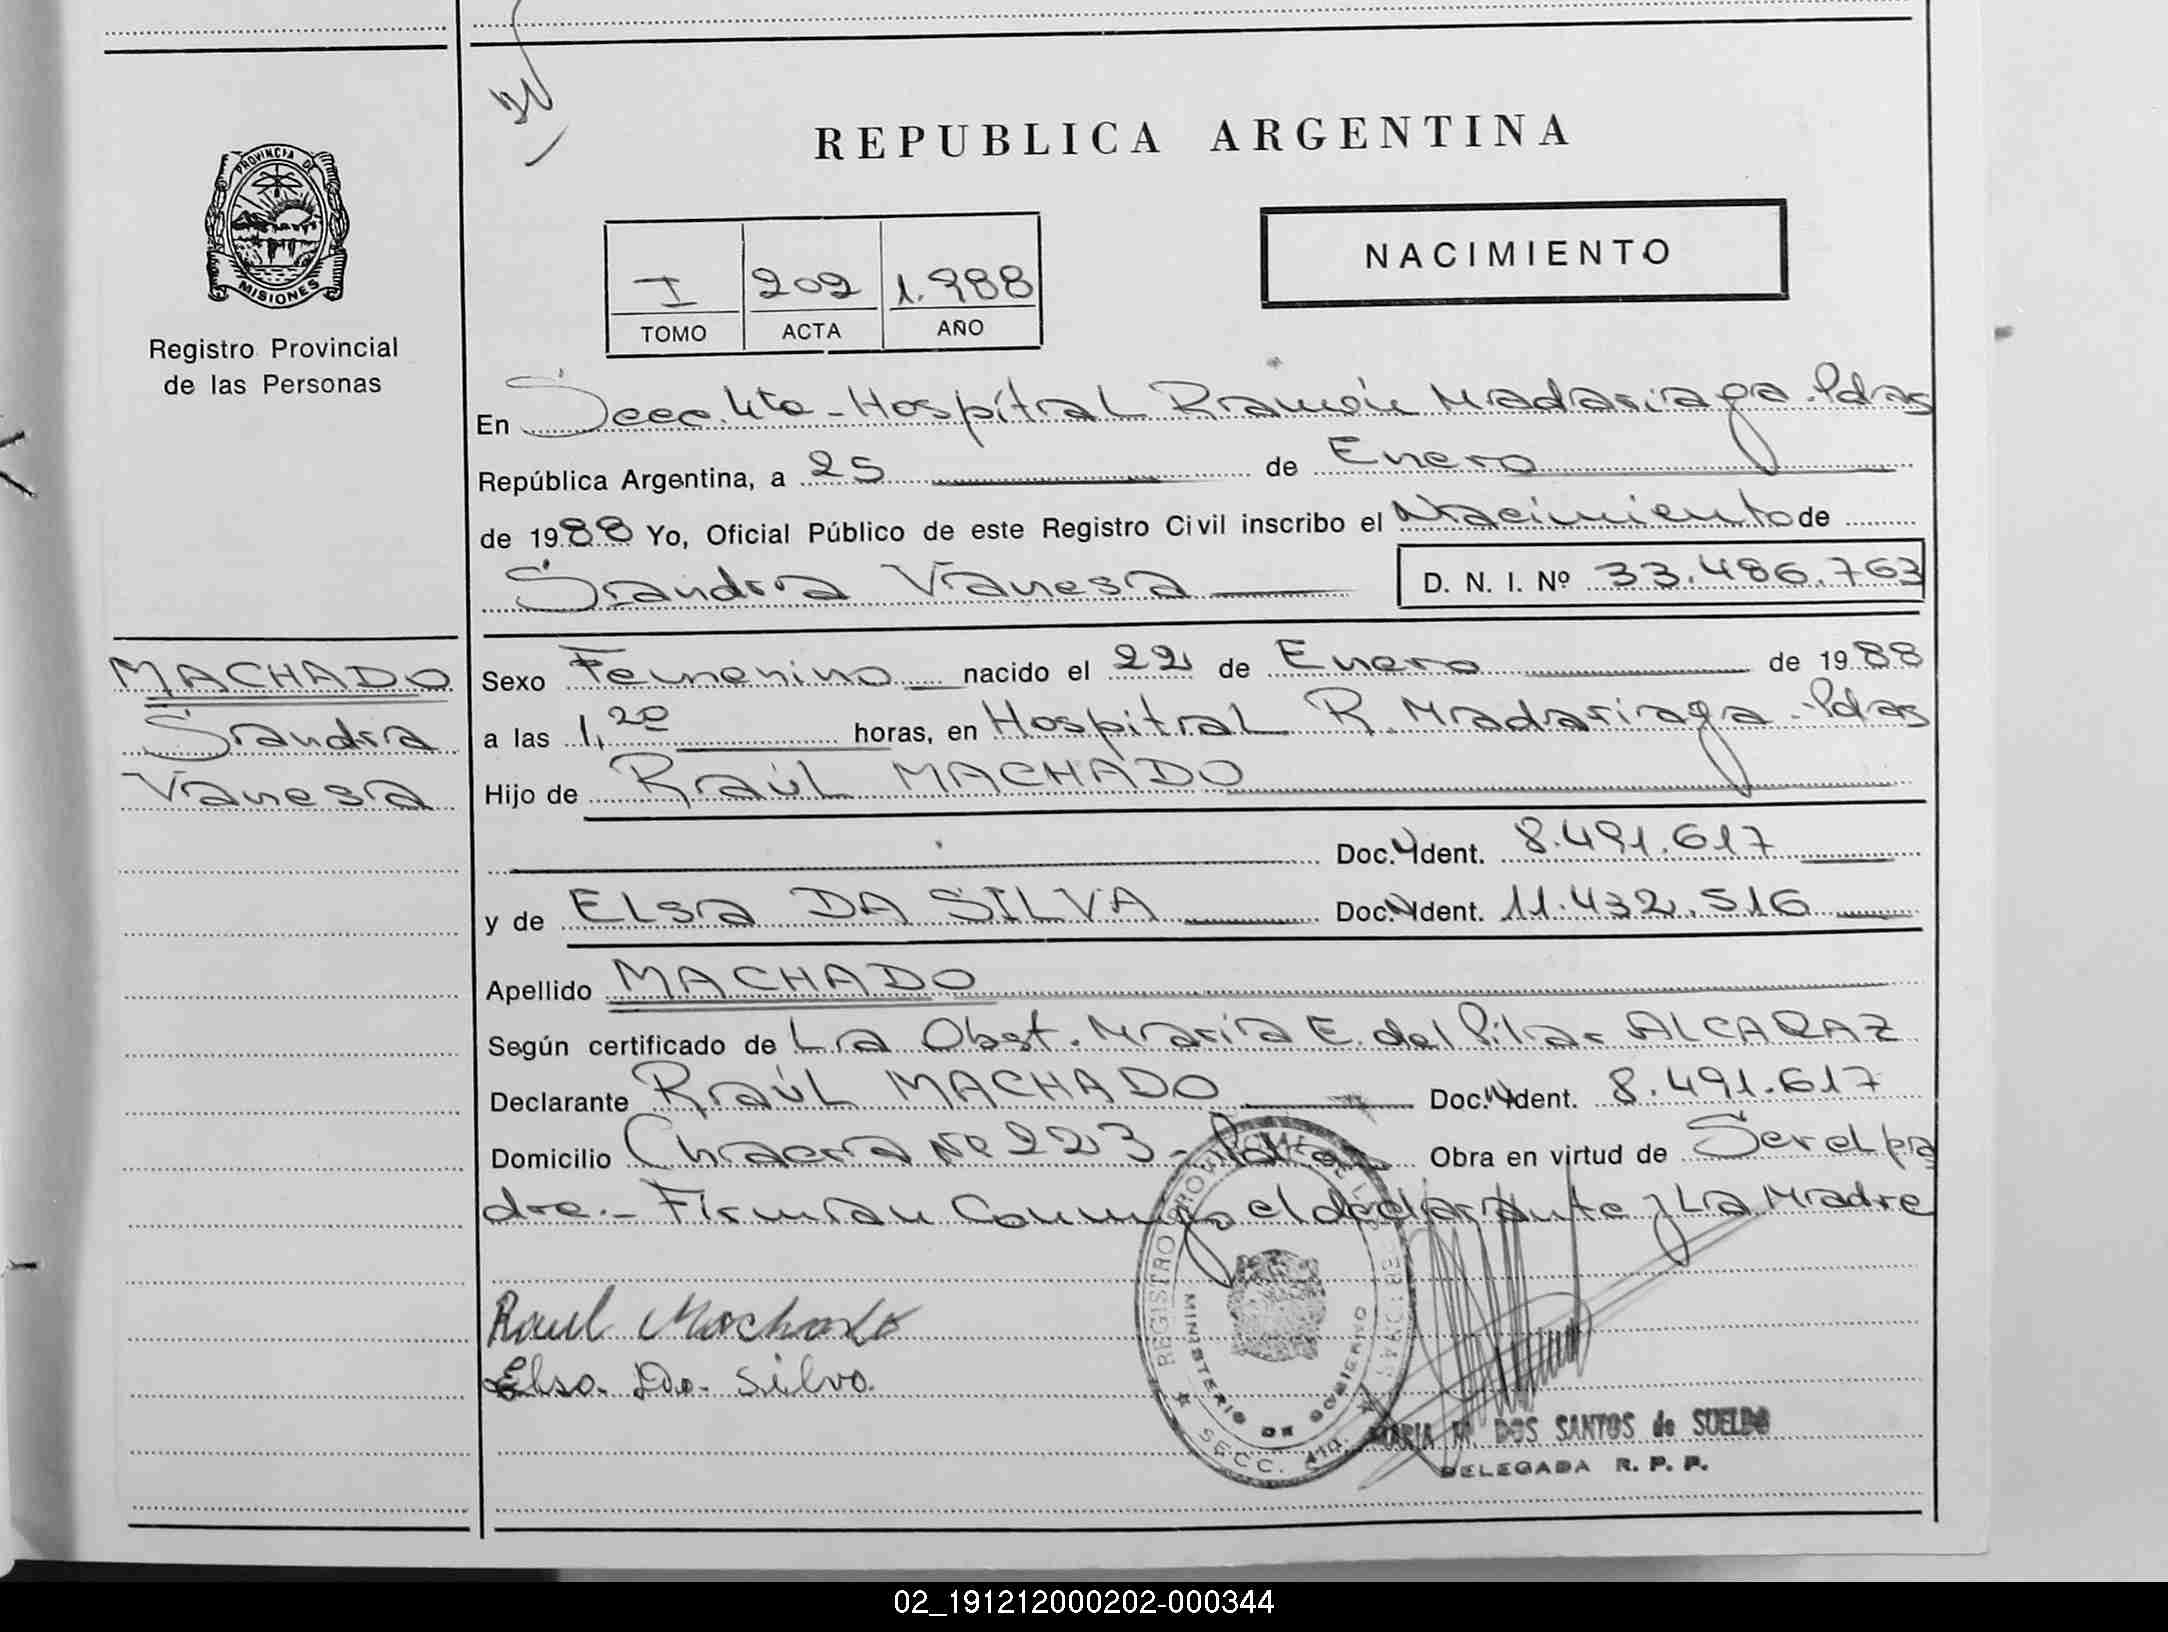 REPUBLICA ARGENTINA
PROVINCIA DE
MISIONES
Registro Provincial
de las Personas
NACIMIENTO
I 202 1.988
TOMO ACTA AÑO
En Secc. 4ta - Hospital Ramón Madariaga - Pdas
República Argentina, a 25 de Enero
de 1988 Yo, Oficial Público de este Registro Civil inscribo el Nacimiento de
Sandra Vanesa D. N. I. Nº 33.486.763
MACHADO
Sandra
Vanesa
Sexo Femenino nacido el 22 de Enero de 1988
a las 1,20 horas, en Hospital R. Madariaga - Pdas
Hijo de Raúl MACHADO
Doc. Ident. 8.491.617
y de Elsa DA SILVA Doc. Ident. 11.432.516
Apellido MACHADO
Según certificado de La Obst. María E. del Pilar ALCARAZ
Declarante Raúl MACHADO Doc. Ident. 8.491.617
Domicilio Chacra Nº 223 - Pdas Obra en virtud de Ser el pa
dre.- Firman Conmigo el declarante y La Madre
Raul Machado
Elsa Da Silva
REGISTRO PROVINCIAL DE LAS PERSONAS
MINISTERIO DE GOBIERNO
SECC. 4ta.
MARIA DOS SANTOS de SUELDO
DELEGADA R. P. P.
02_191212000202-000344